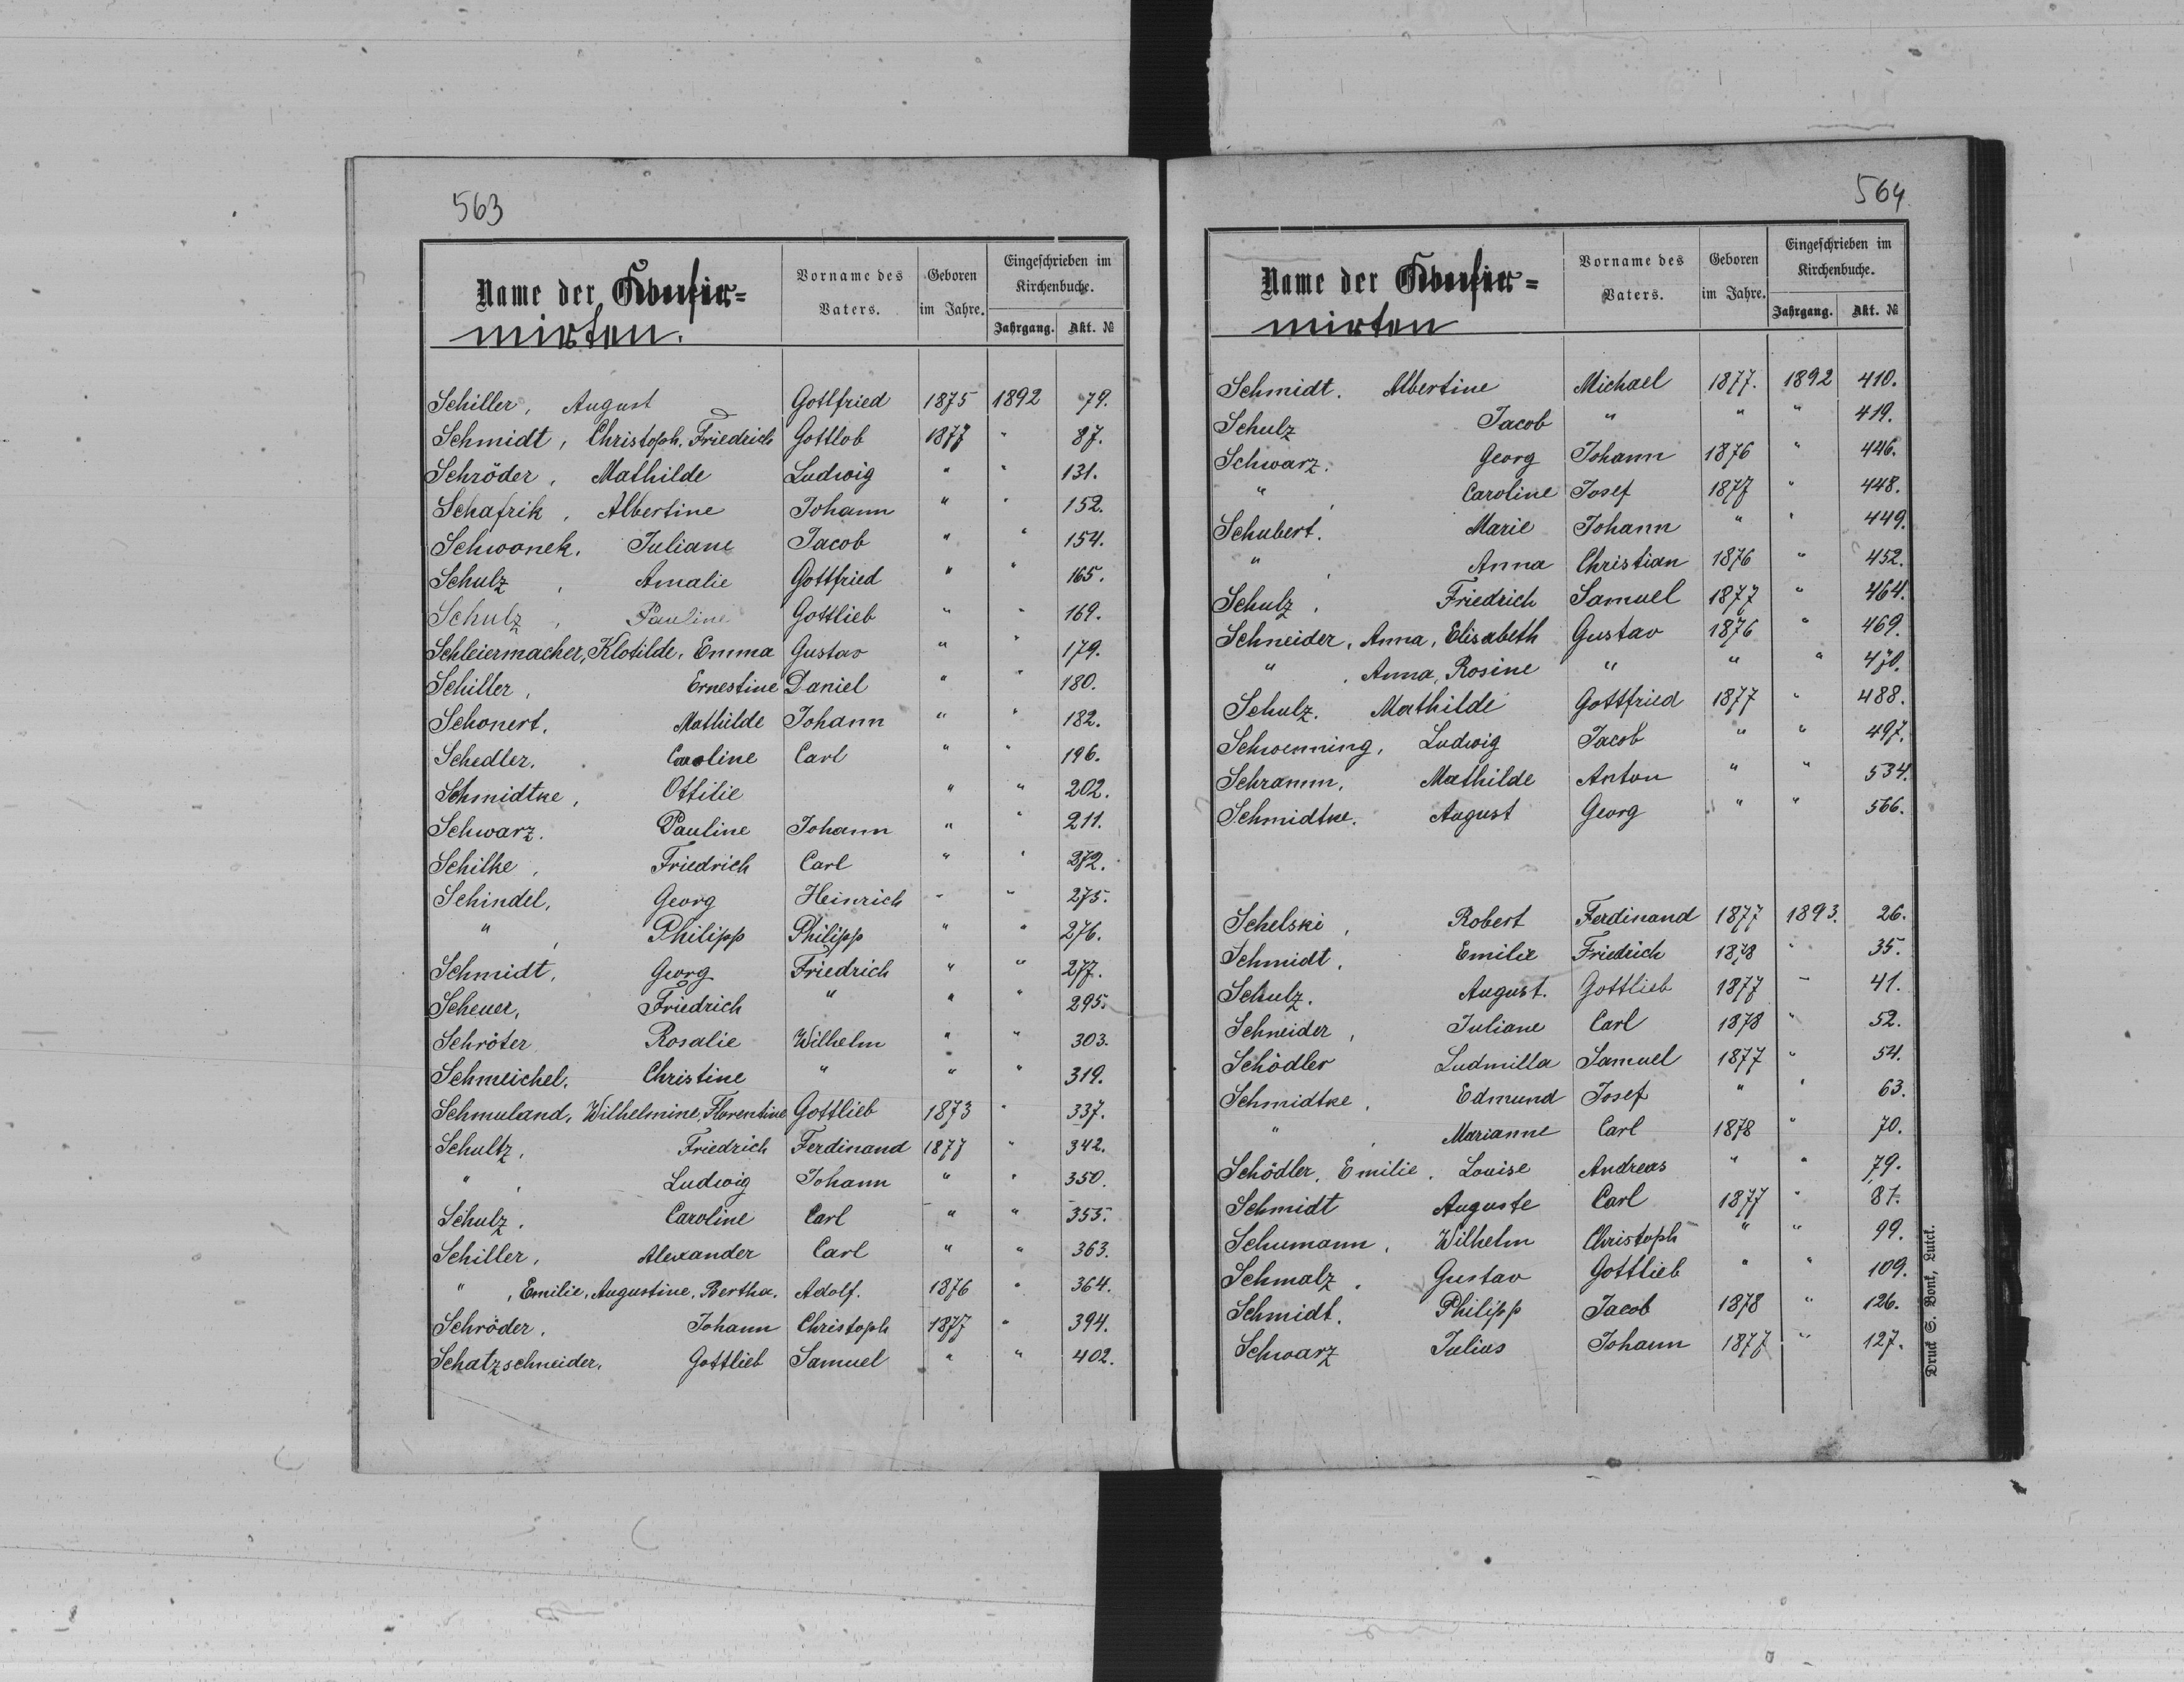 563
Name der Konfir=
mirten.
Vorname des Vaters.
Geboren im Jahre.
Eingeschrieben im Kirchenbuche.
Jahrgang. Akt. №
Schiller, August Gottfried 1875 1892 79.
Schmidt, Christoph. Friedrich Gottlob 1877 " 87.
Schröder, Mathilde Ludwig " " 131.
Schafrik, Albertine Johann " " 152.
Schwonek, Juliane Jacob " " 154.
Schulz, Amalie Gottfried " " 165.
Schulz, Pauline Gottlieb " " 169.
Schleiermacher, Klotilde, Emma Gustav " " 179.
Schiller, Ernestine Daniel " " 180.
Schonert, Mathilde Johann " " 182.
Schedler, Caroline Carl " " 196.
Schmidtke, Ottilie " " 202.
Schwarz. Pauline Johann " " 211.
Schilke, Friedrich Carl " " 272.
Schindel, Georg Heinrich " " 275.
" , Philipp Philipp " " 276.
Schmidt, Georg Friedrich " " 277.
Scheuer, Friedrich " " " 295.
Schröter Rosalie Wilhelm " " 303.
Schmeichel, Christine " " " 319.
Schmuland, Wilhelmine, Florentine Gottlieb 1873 " 337.
Schultz, Friedrich Ferdinand 1877 " 342.
" , Ludwig Johann " " 350.
Schulz. Caroline Carl " " 353.
Schiller, Alexander Carl " " 363.
" , Emilie, Augustine, Bertha. Adolf. 1876 " 364.
Schröder. Johann Christoph 1877 " 394.
Schatzschneider, Gottlieb Samuel " " 402.
564
Name der Konfir=
mirten
Vorname des Vaters.
Geboren im Jahre.
Eingeschrieben im Kirchenbuche.
Jahrgang. Akt. №
Schmidt. Albertine Michael 1877. 1892 410.
Schulz Jacob " " " 419.
Schwarz. Georg Johann 1876 " 446.
" , Caroline Josef 1877 " 448.
Schubert. Marie Johann " " 449.
" , Anna Christian 1876 " 452.
Schulz, Friedrich Samuel 1877 " 464.
Schneider, Anna, Elisabeth Gustav 1876 " 469.
" , Anna, Rosine " " " 470.
Schulz. Mathilde Gottfried 1877 " 488.
Schwenning, Ludwig Jacob " " 497.
Schramm, Mathilde Anton " " 534.
Schmidtke. August Georg " " 566.
Schelski, Robert Ferdinand 1877 1893. 26.
Schmidt, Emilie Friedrich 1878 " 35.
Schulz. August. Gottlieb 1877 " 41.
Schneider, Juliane Carl 1878 " 52.
Schödler Ludmilla Samuel 1877 " 54.
Schmidtke, Edmund Josef " " 63.
" , Marianne Carl 1878 " 70.
Schödler, Emilie. Louise Andreas " " 79.
Schmidt Auguste Carl 1877 " 81.
Schumann, Wilhelm Christoph " " 99.
Schmalz, Gustav Gottlieb " " 109.
Schmidt. Philipp Jacob 1878 " 126.
Schwarz Julius Johann 1877 " 127.
Druck S. Bonk, Lutck.